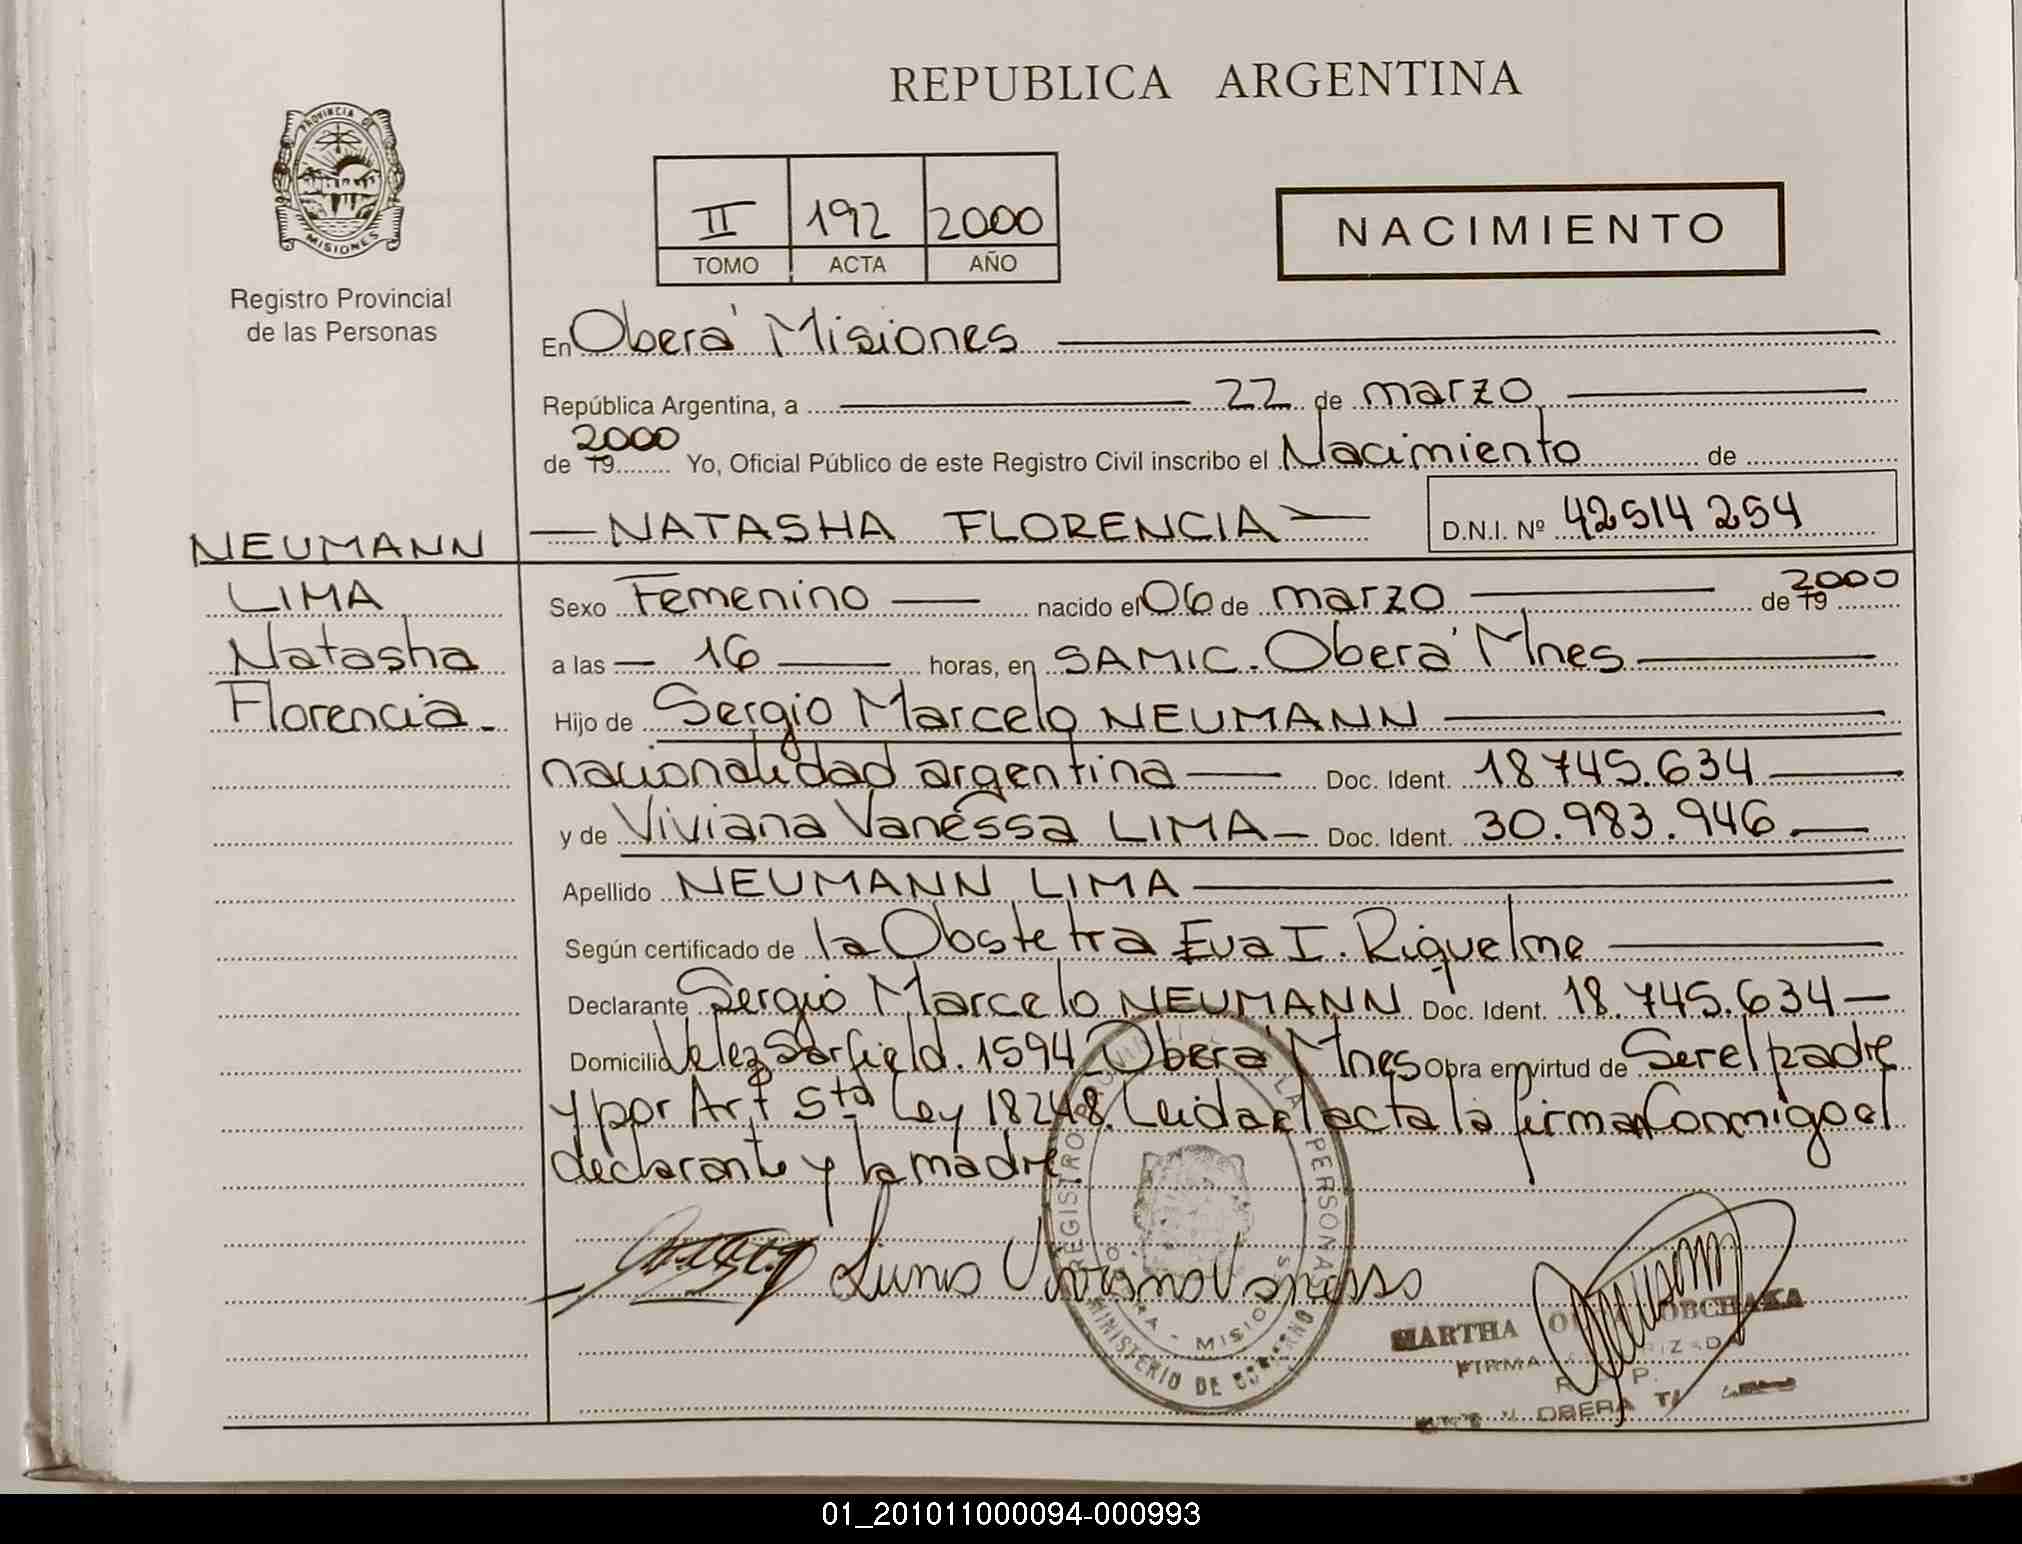 REPUBLICA ARGENTINA
PROVINCIA DE
MISIONES
Registro Provincial
de las Personas
II 192 2000
TOMO ACTA AÑO
NACIMIENTO
En Oberá Misiones
República Argentina, a 22 de marzo
de 19 2000 Yo, Oficial Público de este Registro Civil inscribo el Nacimiento de
NATASHA FLORENCIA D.N.I. Nº 42514254
NEUMANN
LIMA
Natasha
Florencia
Sexo Femenino nacido el 06 de marzo de 19 2000
a las 16 horas, en SAMIC. Oberá Mnes
Hijo de Sergio Marcelo NEUMANN
nacionalidad argentina Doc. Ident. 18.745.634
y de Viviana Vanessa LIMA Doc. Ident. 30.983.946
Apellido NEUMANN LIMA
Según certificado de la Obstetra Eva I. Riquelme
Declarante Sergio Marcelo NEUMANN Doc. Ident. 18.745.634
Domicilio Velez Sarfield. 1594 Oberá Mnes Obra en virtud de Ser el padre
y por Art 5to Ley 18248. Leida el acta la firman Conmigo el
declarante y la madre.
REGISTRO LA PERSONAS
MINISTERIO DE GOBIERNO
MARTHA
FIRMA
OBERA
01_201011000094-000993